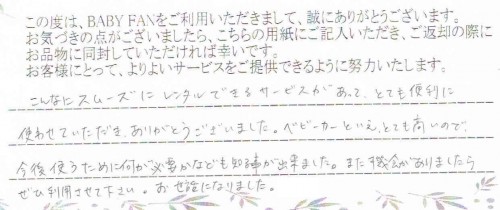 この度は、BABY FANをご利用いただきまして、誠にありがとうございます。
お気づきの点がございましたら、こちらの用紙にご記入いただき、ご返却の際に
お品物に同封していただければ幸いです。
お客様にとって、よりよいサービスをご提供できるように努力いたします。
こんなにスムーズにレンタルできるサービスがあって、とても便利に
使わせていただき、ありがとうございました。ベビーカーといえ、とても高いので、
今後使うために何が必要かなども知識が出来ました。また機会がありましたら
ぜひ利用させて下さい。お世話になりました。